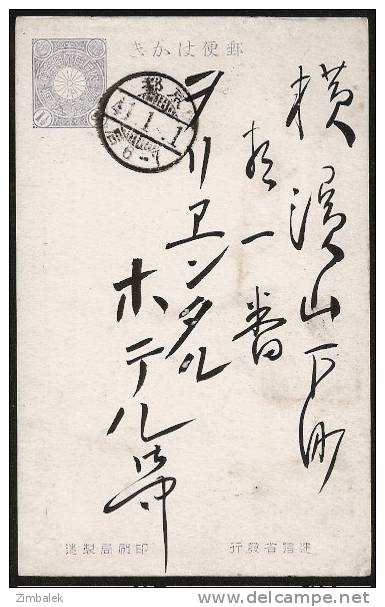 郵便はかき
1½
京都
41.1.1
6-7
横濱山下町
拾一番
ヲリヱンタル
ホテル
遞信省發行
印刷局製造
Zimbalek
delcampe.net